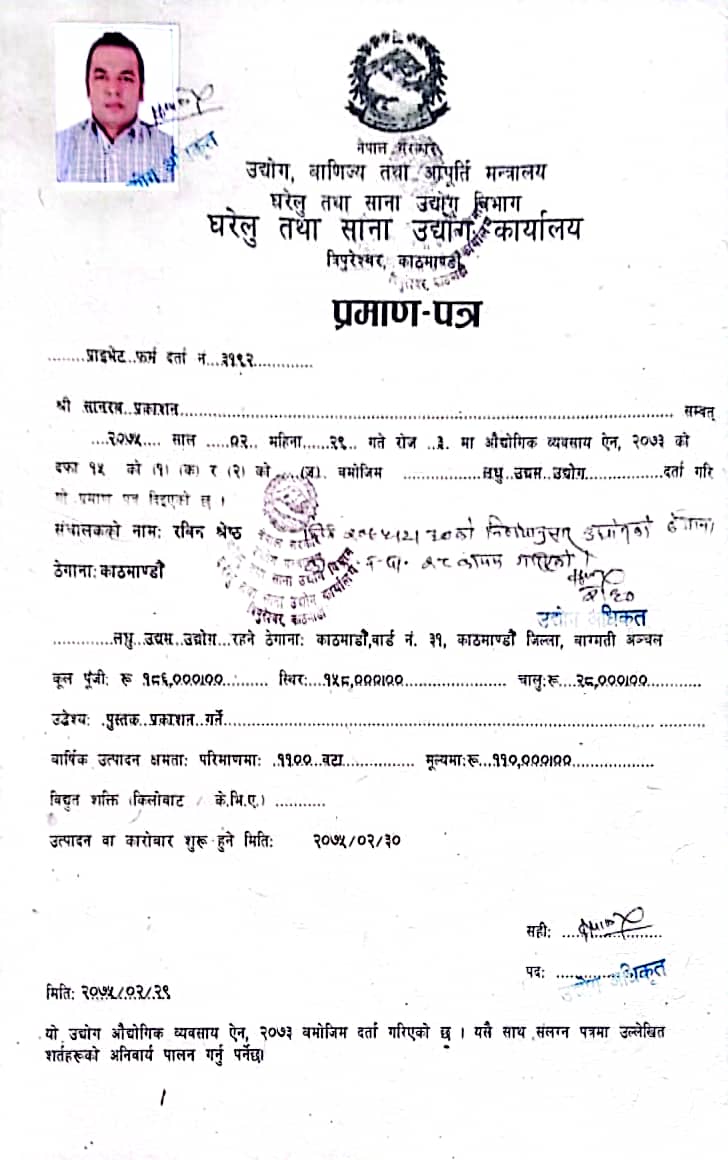 नेपाल सरकार
उद्योग, वाणिज्य तथा आपूर्ति मन्त्रालय
घरेलु तथा साना उद्योग विभाग
घरेलु तथा साना उद्योग कार्यालय
त्रिपुरेश्वर, काठमाण्डौ
प्रमाण-पत्र
........प्राइभेट..फर्म दर्ता नं...३१९२.............
श्री सानरथ..प्रकाशन.................................................................................... सम्वत्
....२०७५.... साल .....०२.. महिना......२९.. गते रोज ..३. मा औद्योगिक व्यवसाय ऐन, २०७३ को
दफा १५ को (१) (क) र (२) को ....(ज). बमोजिम .................लघु..उद्यम..उद्योग.................दर्ता गरि
यो प्रमाण पत्र दिइएको छ ।
संचालकको नाम: रबिन श्रेष्ठ २०७५।२।३०को उद्योगको ठेगाना
ठेगाना: काठमाण्डौ २८ कायम गरिएको।
उद्योग अधिकृत
.............लघु..उद्यम..उद्योग...रहने ठेगाना: काठमाडौं,वार्ड नं. ३१, काठमाण्डौ जिल्ला, बाग्मती अञ्चल
कूल पूंजी: रू १८६,०००।००.......... स्थिर:...१५८,०००।००.................... चालु:रू....२८,०००।००............
उद्देश्य: .पुस्तक..प्रकाशन..गर्ने.................................................................................
वार्षिक उत्पादन क्षमता: परिमाणमा: .११००..वटा.............. मूल्यमा:रू...११०,०००।००................
विद्युत शक्ति (किलोवाट / के.भि.ए.) ...........
उत्पादन वा कारोबार शुरू हुने मिति: २०७५/०२/३०
सही: ....................
पद: ....................
उद्योग अधिकृत
मिति: २०७५/०२/२९
यो उद्योग औद्योगिक व्यवसाय ऐन, २०७३ बमोजिम दर्ता गरिएको छ । यसै साथ संलग्न पत्रमा उल्लेखित
शर्तहरूको अनिवार्य पालन गर्नु पर्नेछ।